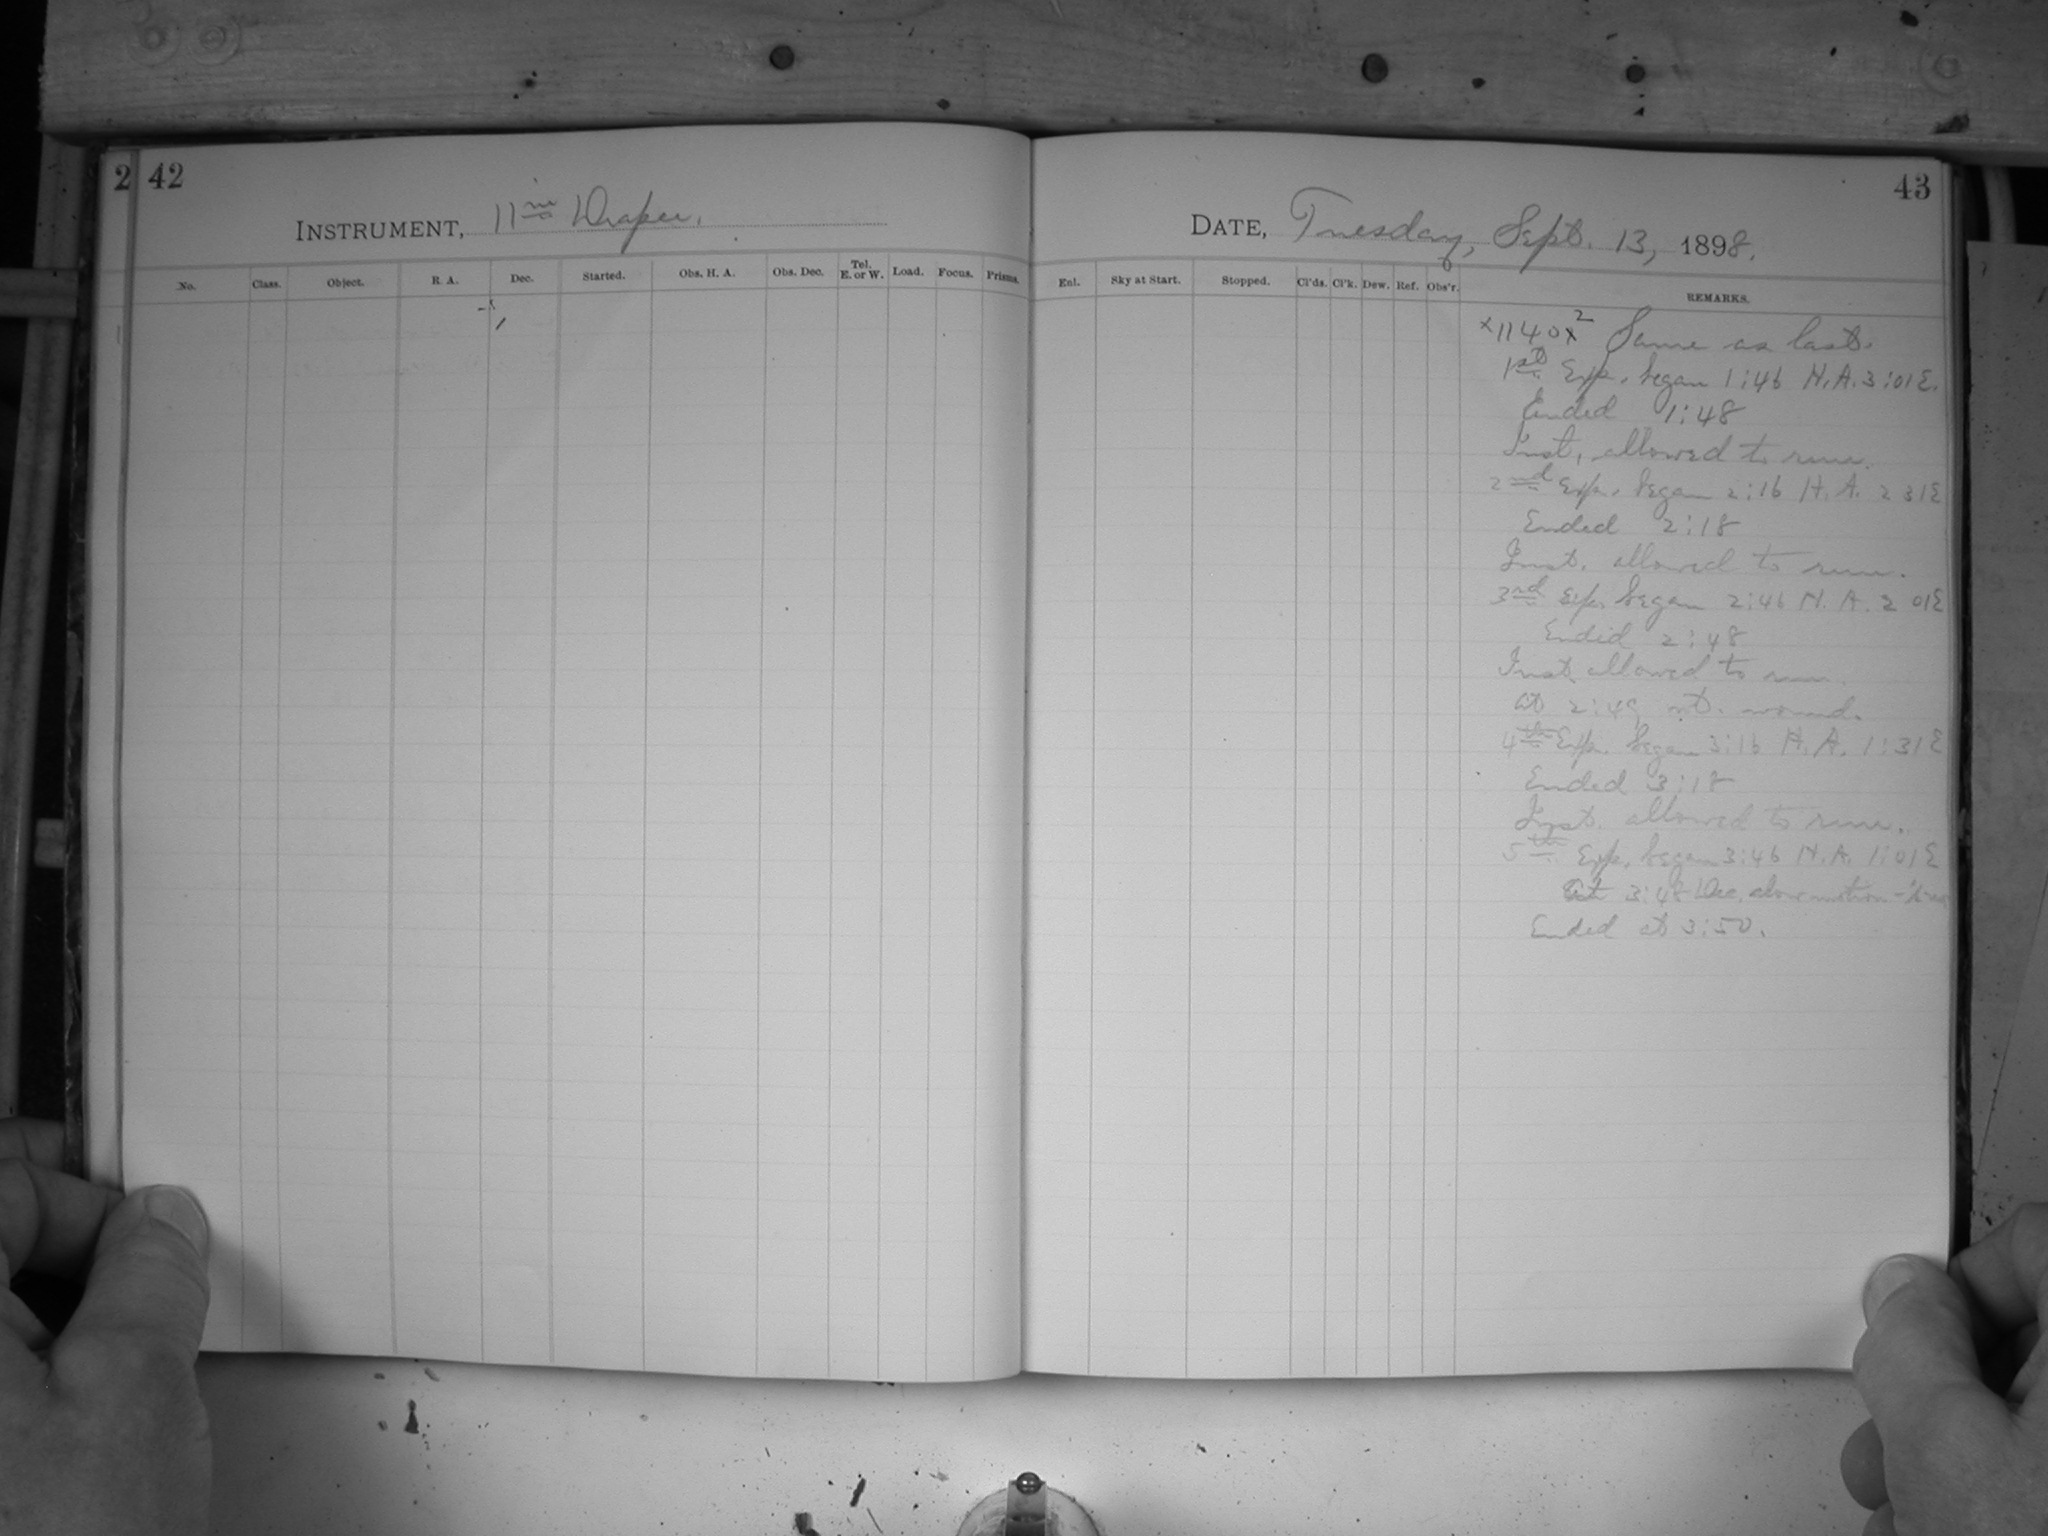 2 42
INSTRUMENT, 11 in Draper.
No. Class. Object. R. A. Dec. Started. Obs. H. A. Obs. Dec. Tel. E. or W. Load. Focus. Prisms.
43
DATE, Tuesday, Sept. 13, 1898.
Enl. Sky at Start. Stopped. Cl'ds. Cl'k. Dew. Ref. Obs'r. REMARKS.
x1140x2 Same as last.
1st Exp. began 1:46 H.A. 3:01 E.
Ended 1:48
Inst. allowed to run.
2nd Exp. began 2:16 H. A. 2 31 E
Ended 2:18
Inst. allowed to run.
3rd Exp. began 2:46 H. A. 2 01 E
Ended 2:48
Inst. allowed to run.
at 2:49 wt. wound.
4th Exp. began 3:16 H. A. 1:31 E
Ended 3:18
Inst. allowed to run.
5th Exp. began 3:46 H.A. 1:01 E
At 3:48 Dec. slow motion
Ended at 3:50.